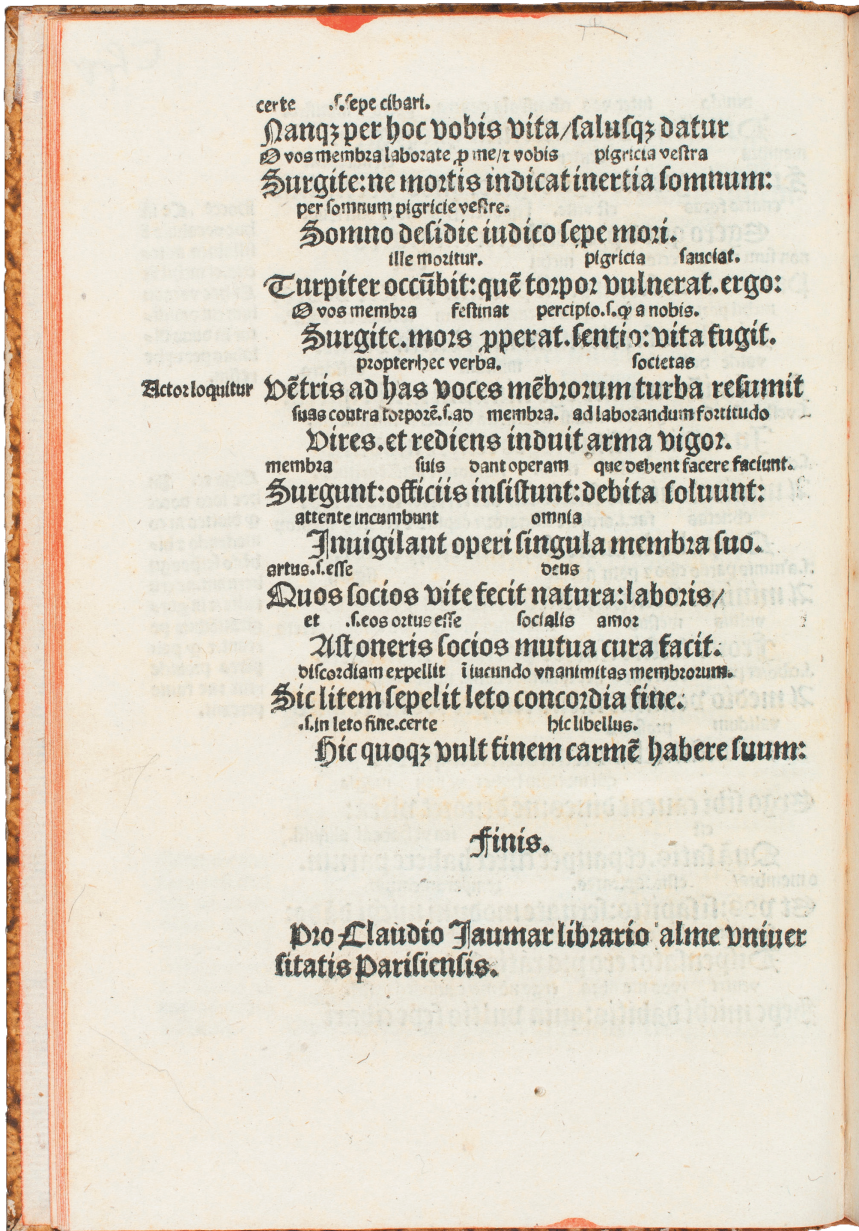 certe .s.sepe cibari.
Nanqȝ per hoc vobis vita/saluſqȝ datur
O vos membra laborate ꝓ me/⁊ vobis pigricia veſtra
Surgite:ne mortis indicat inertia ſomnum:
per ſomnum pigricie veſtre.
Somno deſidie iudico ſepe mori.
ille moritur. pigricia ſauciat.
Turpiter occūbit:quē torpor vulnerat.ergo:
O vos membra feſtinat percipio.s.ꝙ a nobis.
Surgite.mors ꝓperat.ſentio:vita fugit.
propterhec verba. ſocietas
Actor loquitur Vētris ad has voces mēbrorum turba reſumit
ſuas contra torporē.s.ad membra. ad laborandum fortitudo
Vires.et rediens induit arma vigor.
membra ſuis dant operam que debent facere faciunt.
Surgunt:officiis inſiſtunt:debita ſoluunt:
attente incumbunt omnia
Inuigilant operi ſingula membra ſuo.
artus.s.eſſe deus
Quos ſocios vite fecit natura:laboris/
et .s.eos ortus eſſe ſocialis amor
Aſt oneris ſocios mutua cura facit.
diſcordiam expellit ī iucundo vnanimitas membrorum.
Sic litem ſepelit leto concordia fine.
.s.in leto fine.certe hic libellus.
Hic quoqȝ vult finem carmē habere ſuum:
Finis.
Pro Claudio Jaumar librario alme vniuer
ſitatis Pariſienſis.